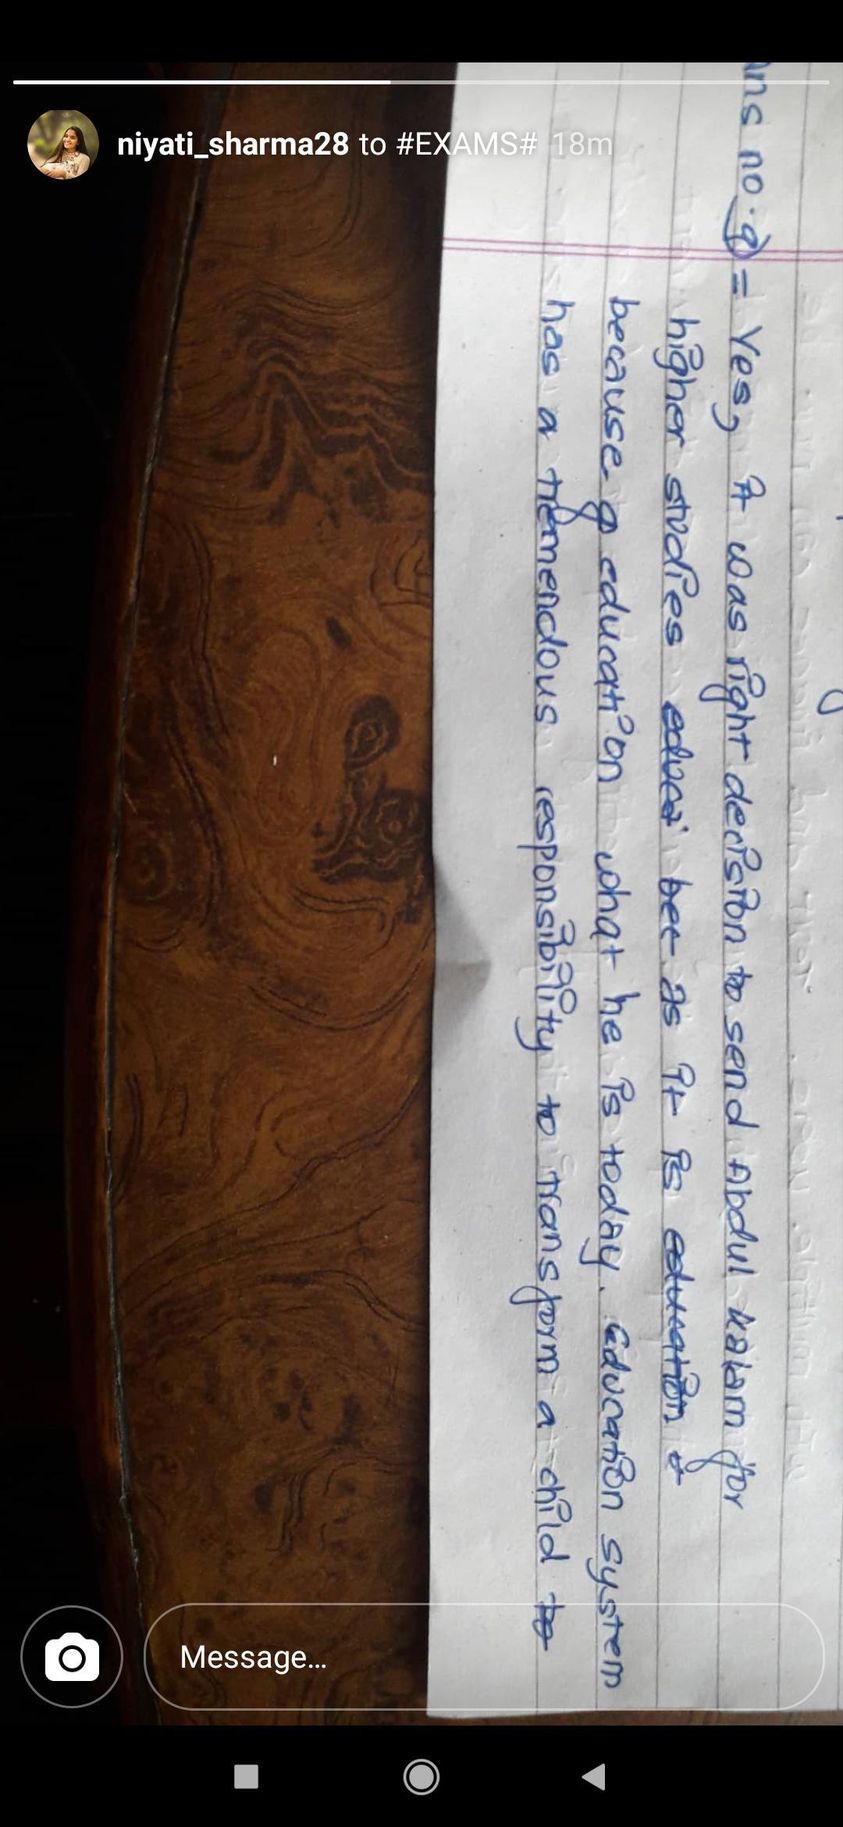 niyati_sharma28 to #EXAMS# 18m
Ans no. 9) = Yes, it was right decision to send Abdul Kalam for
higher studies educa bec as it is education
because of education what he is today. Education system
has a tremendous responsibility to transform a child to
Message...